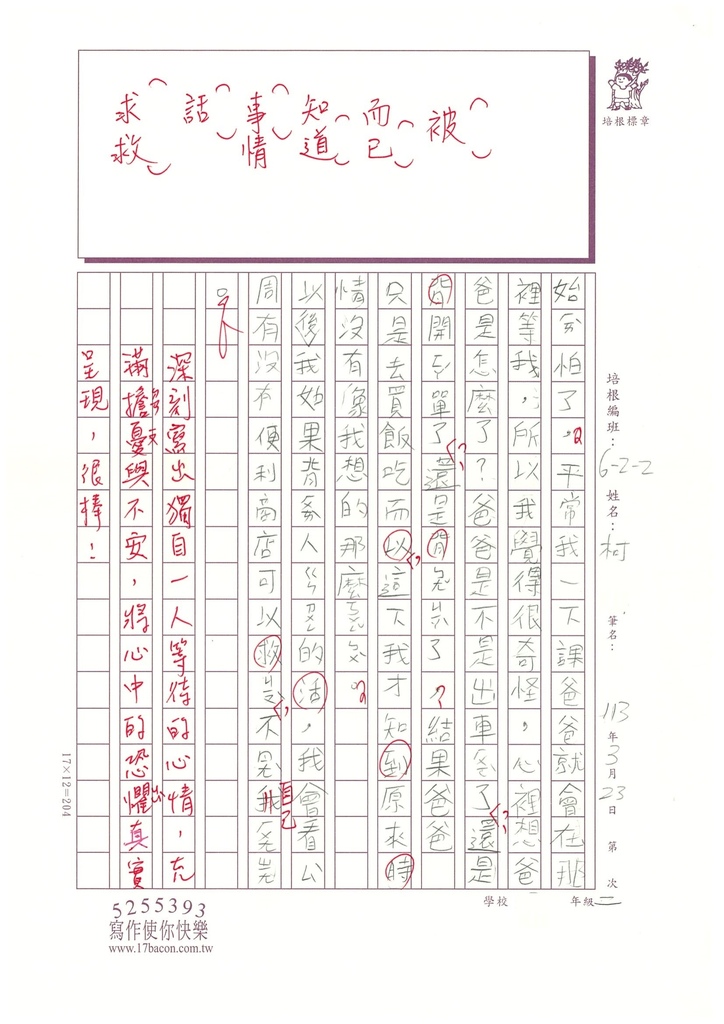 被
而已
知道
事情
話
求救
培根標章
培根編班：6-2-2 姓名：柯 筆名： 113年3月23日 第 次
學校 年級二
始分怕了。平常我一下課爸爸就會在那
裡等我，所以我覺得很奇怪，心裡想爸
爸是怎麼了？爸爸是不是出車ㄏㄨㄛˋ了還是
開ㄉㄠ單了還是ㄅㄤ了？結果爸爸
只是去買飯吃而以這下我才知到原來時
情沒有像我想的那麼
以後我如果背人的活，我會看
周有沒有便利商店可以救不是我自己
深刻寫出獨自一人等待的心情，充
滿擔憂與不安，將心中的恐懼真實
呈現，很棒！
17×12=204
5255393
寫作使你快樂
www.17bacon.com.tw